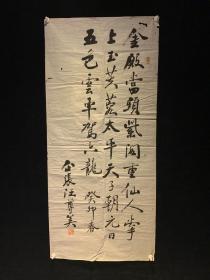 金殿當頭紫閣重仙人掌
上玉芙蓉太平天子朝元日
五色雲車駕六龍 癸卯春